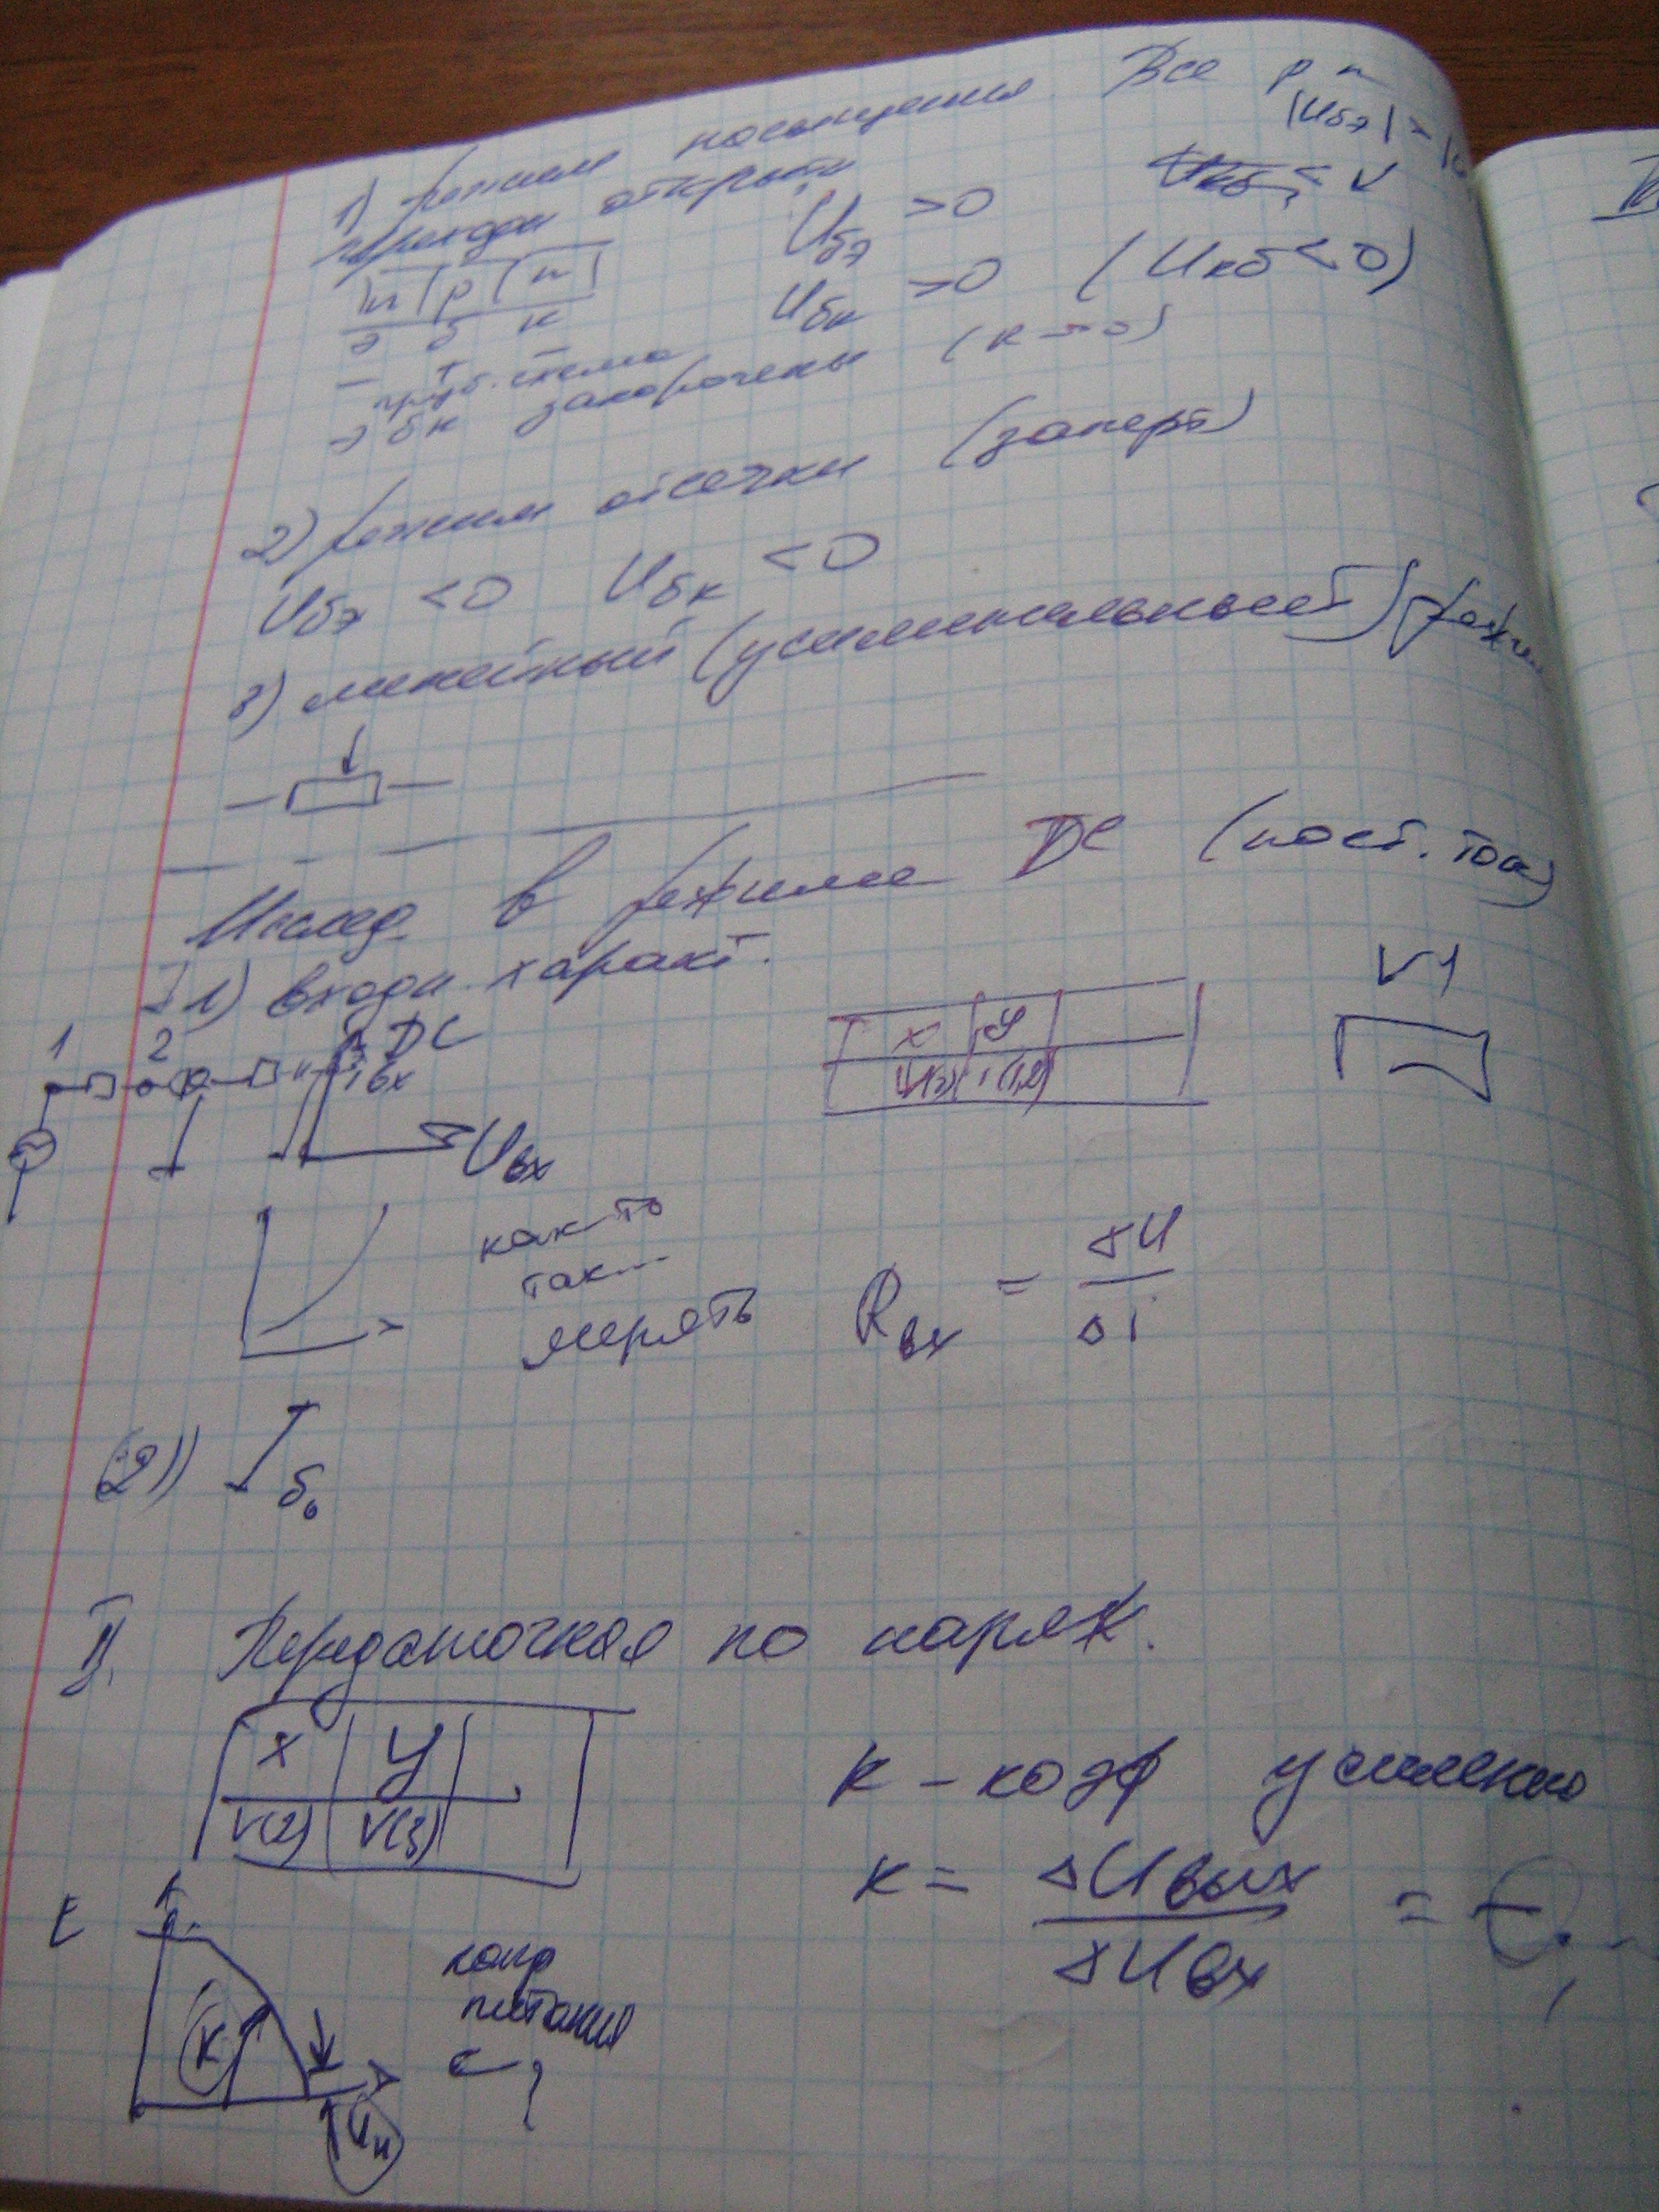 1) режим насыщения. Все p n
переходы открыты
|Uбэ| >
Uбэ >0
n p n
э б к
Uбк >0 (Uкб<0)
- +
эбк закорочены (R→0)
2) режим отсечки (заперт)
Uбэ <0 Uбк <0
3) линейный (усилительный) режим
Исслед. в режиме DC (пост. ток)
I 1) входн. характ.
V1
1 2
DC
iвх
X Y
Uвх
как-то
так...
мерять
Rвх = ΔU / Δi
(2))
II. Передаточная по напряж.
X Y
V(2) V(3)
K – коэф усиления
K = ΔUвых / ΔUвх =
E
K
напр
питания
Uн